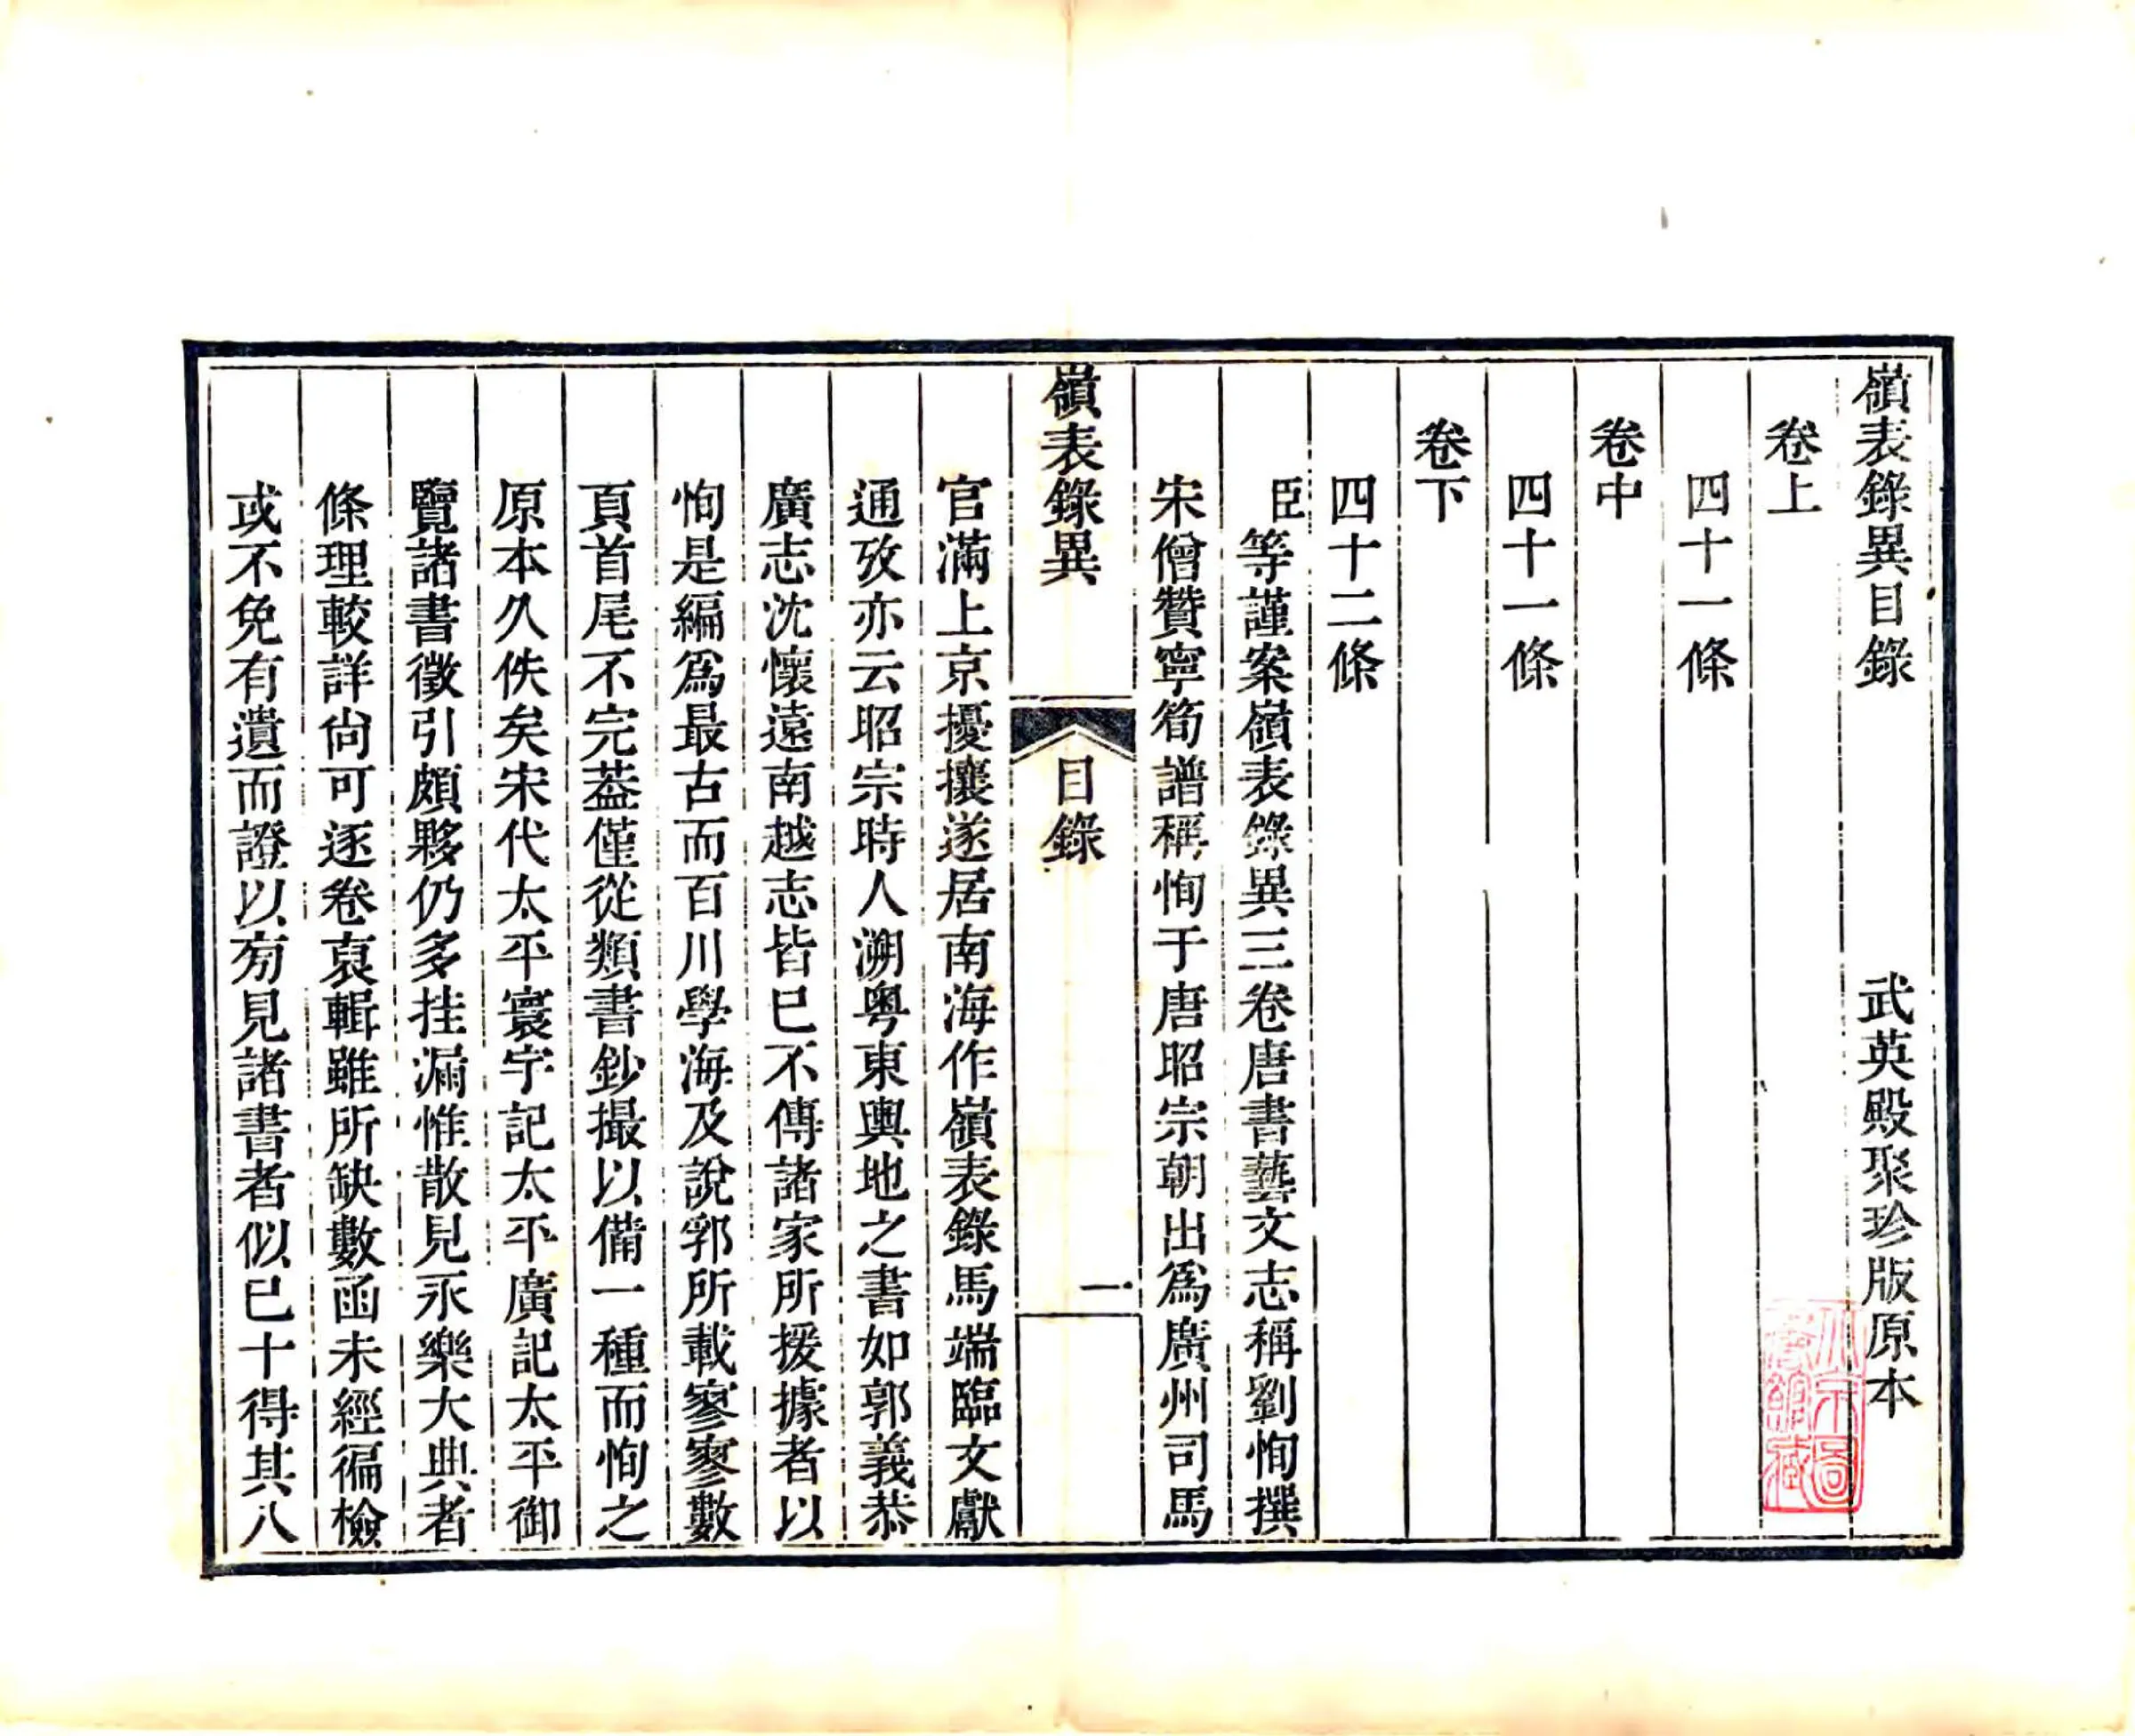 嶺表錄異目錄　武英殿聚珍版原本
卷上
四十一條
卷中
四十一條
卷下
四十二條
臣等謹案嶺表錄異三卷唐書藝文志稱劉恂撰
宋僧贊寧筍譜稱恂于唐昭宗朝出爲廣州司馬
嶺表錄異　目錄　一
官滿上京擾攘遂居南海作嶺表錄馬端臨文獻
通攷亦云昭宗時人溯粤東輿地之書如郭義恭
廣志沈懷遠南越志皆已不傳諸家所援據者以
恂是編爲最古而百川學海及說郛所載寥寥數
頁首尾不完葢僅從類書鈔撮以備一種而恂之
原本久佚矣宋代太平寰宇記太平廣記太平御
覽諸書徵引頗夥仍多挂漏惟散見永樂大典者
條理較詳尙可逐卷裒輯雖所缺數函未經徧檢
或不免有遺而證以旁見諸書者似已十得其八